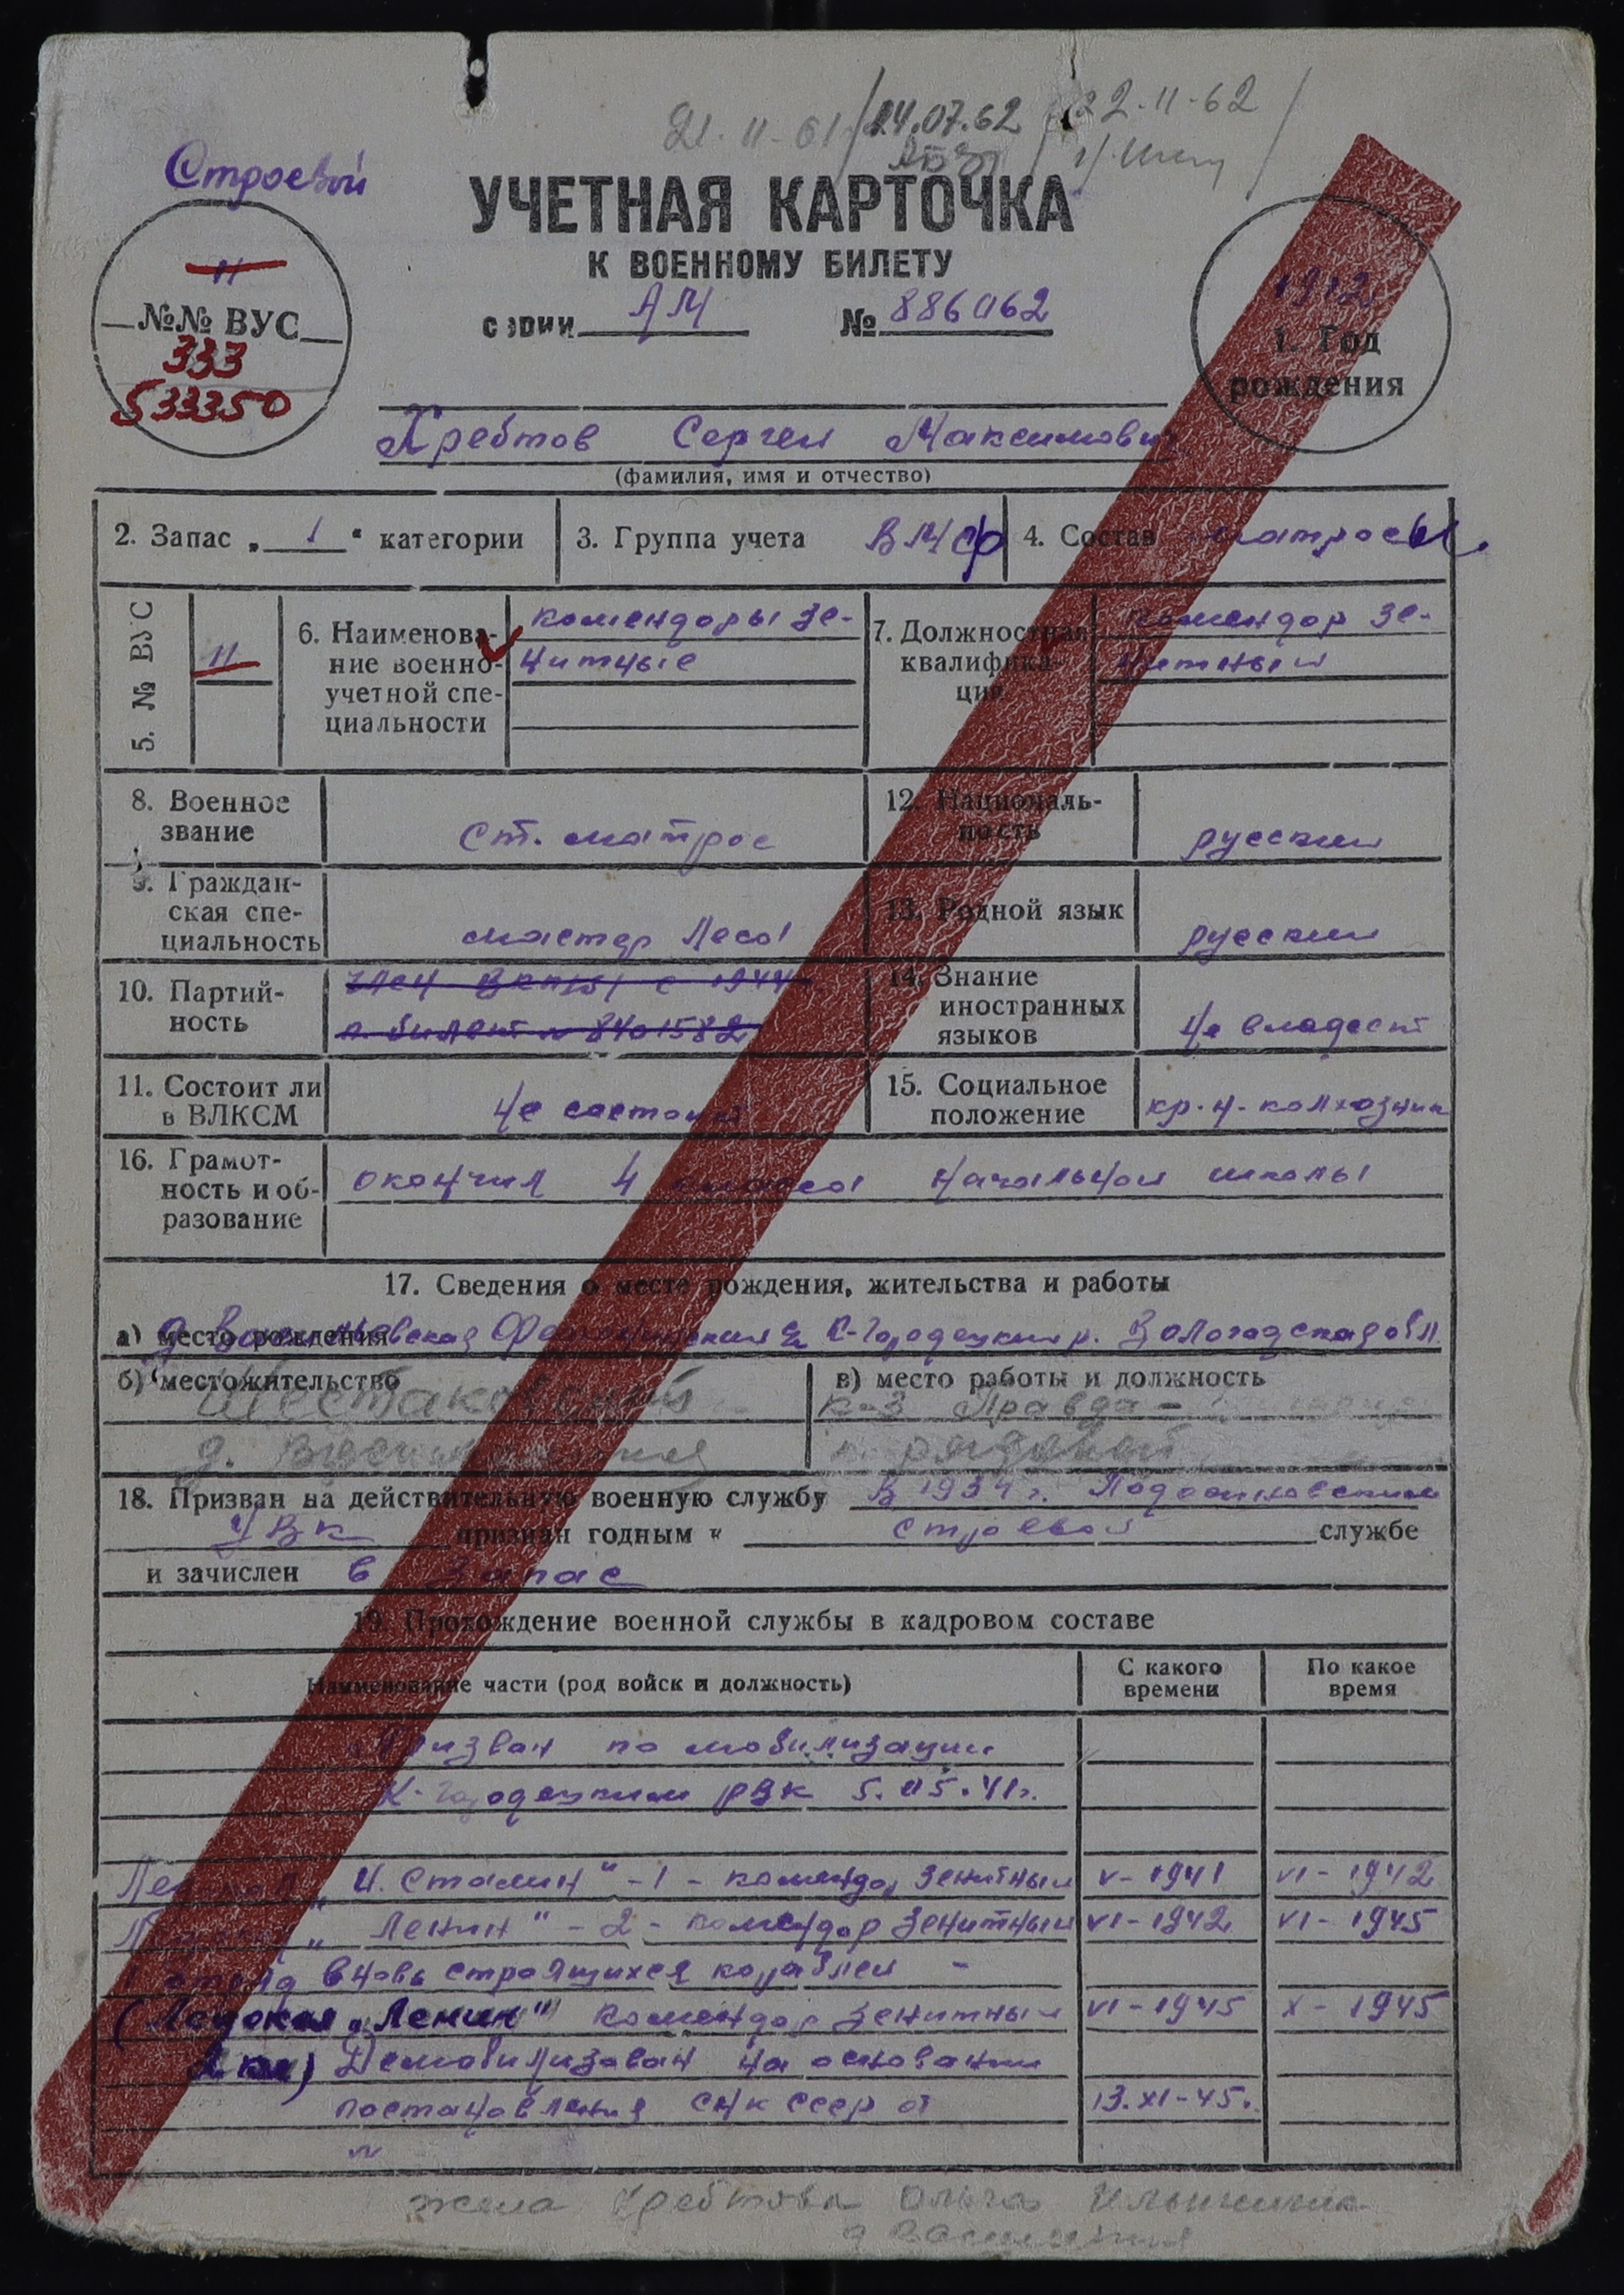 21-11-61 / 24.07.62 / 22-11-62 /
Строевой
УЧЕТНАЯ КАРТОЧКА
К ВОЕННОМУ БИЛЕТУ
серии АМ № 886062
11
№№ ВУС
333
533350
1912
1. Год рождения
Хребтов Сергей Максимович
(фамилия, имя и отчество)
2. Запас „ 1 “ категории
3. Группа учета ВМФ
4. Состав матросы
5. № ВУС 11
6. Наименова-
ние военно-
учетной спе-
циальности
комендоры зе-
нитные
7. Должностная
квалифика-
ция
комендор зе-
нитный
8. Военное
звание
ст. матрос
12. Националь-
ность
русский
9. Граждан-
ская спе-
циальность
мастер леса
13. Родной язык
русский
10. Партий-
ность
член ВКП(б) с 1944
п. билет № 8401582
14. Знание
иностранных
языков
не владеет
11. Состоит ли
в ВЛКСМ
не состоит
15. Социальное
положение
кр-н-колхозник
16. Грамот-
ность и об-
разование
окончил 4 класса начальной школы
17. Сведения о месте рождения, жительства и работы
а) место рождения К-Городецкий р. Вологодская обл.
б) местожительство
Шестаковский
д.
в) место работы и должность
к-з Правда -
рядовой
18. Призван на действительную военную службу в 1934 г. Подосиновским
РВК признан годным к строевой службе
и зачислен в запас
19. Прохождение военной службы в кадровом составе
Наименование части (род войск и должность)
С какого
времени
По какое
время
Призван по мобилизации
К-Городецким РВК 5.05.41г.
Ледокол „И. Сталин" -1- комендор зенитный V-1941 VI-1942
Ледокол „Ленин" -2- комендор зенитный VI-1942 VI-1945
отряд вновь строящихся кораблей -
(Ледокол „Ленин" комендор зенитный VI-1945 X-1945
Демобилизован на основании
постановления СНК СССР от 13.XI-45.
жена Хребтова Ольга